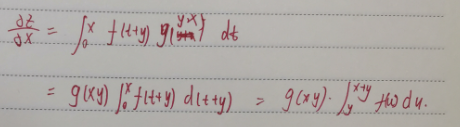 ∂z/∂x = ∫₀ˣ f(t+y) g(yx) dt
= g(xy) ∫₀ˣ f(t+y) d(t+y) = g(xy)·∫_y^{x+y} f(u) du.